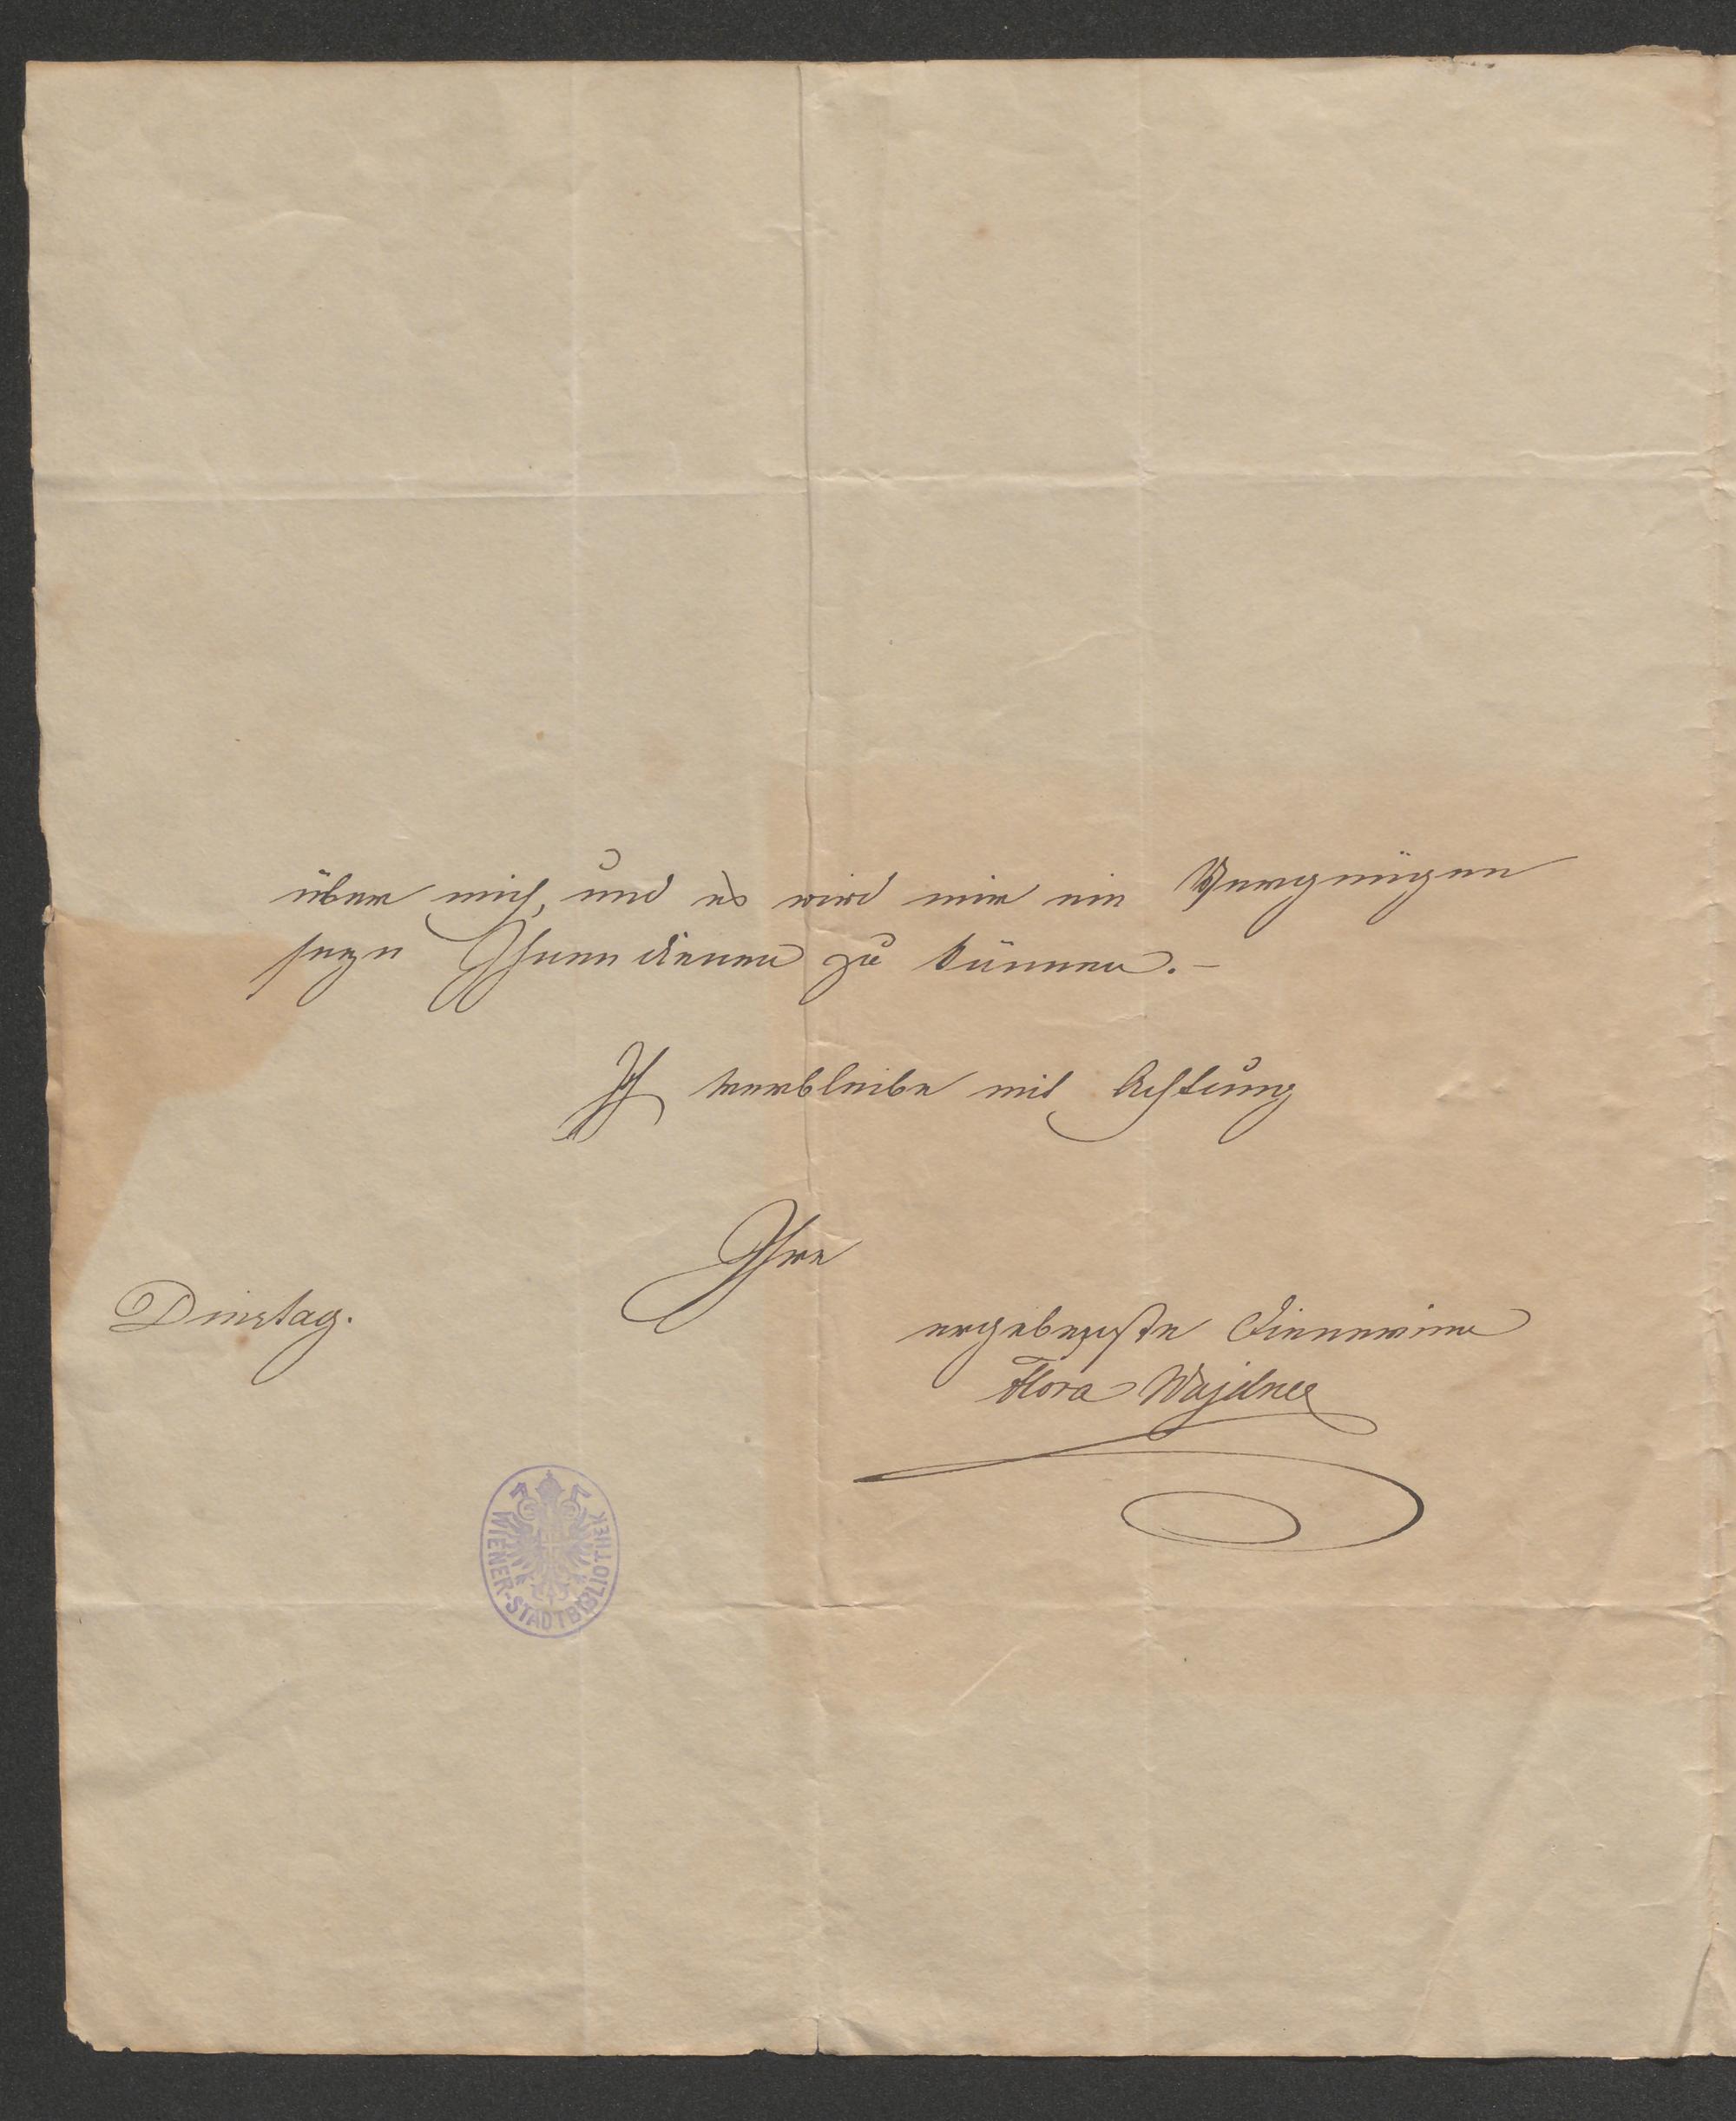 über mich, und es wird mir ein Vergnügen
seyn Ihnen dienen zu können.-
Ich verbleibe mit Achtung
Ihre
Dinstag.
ergebenste Dienerinn
Flora
WIENER-STADTBIBLIOTHEK